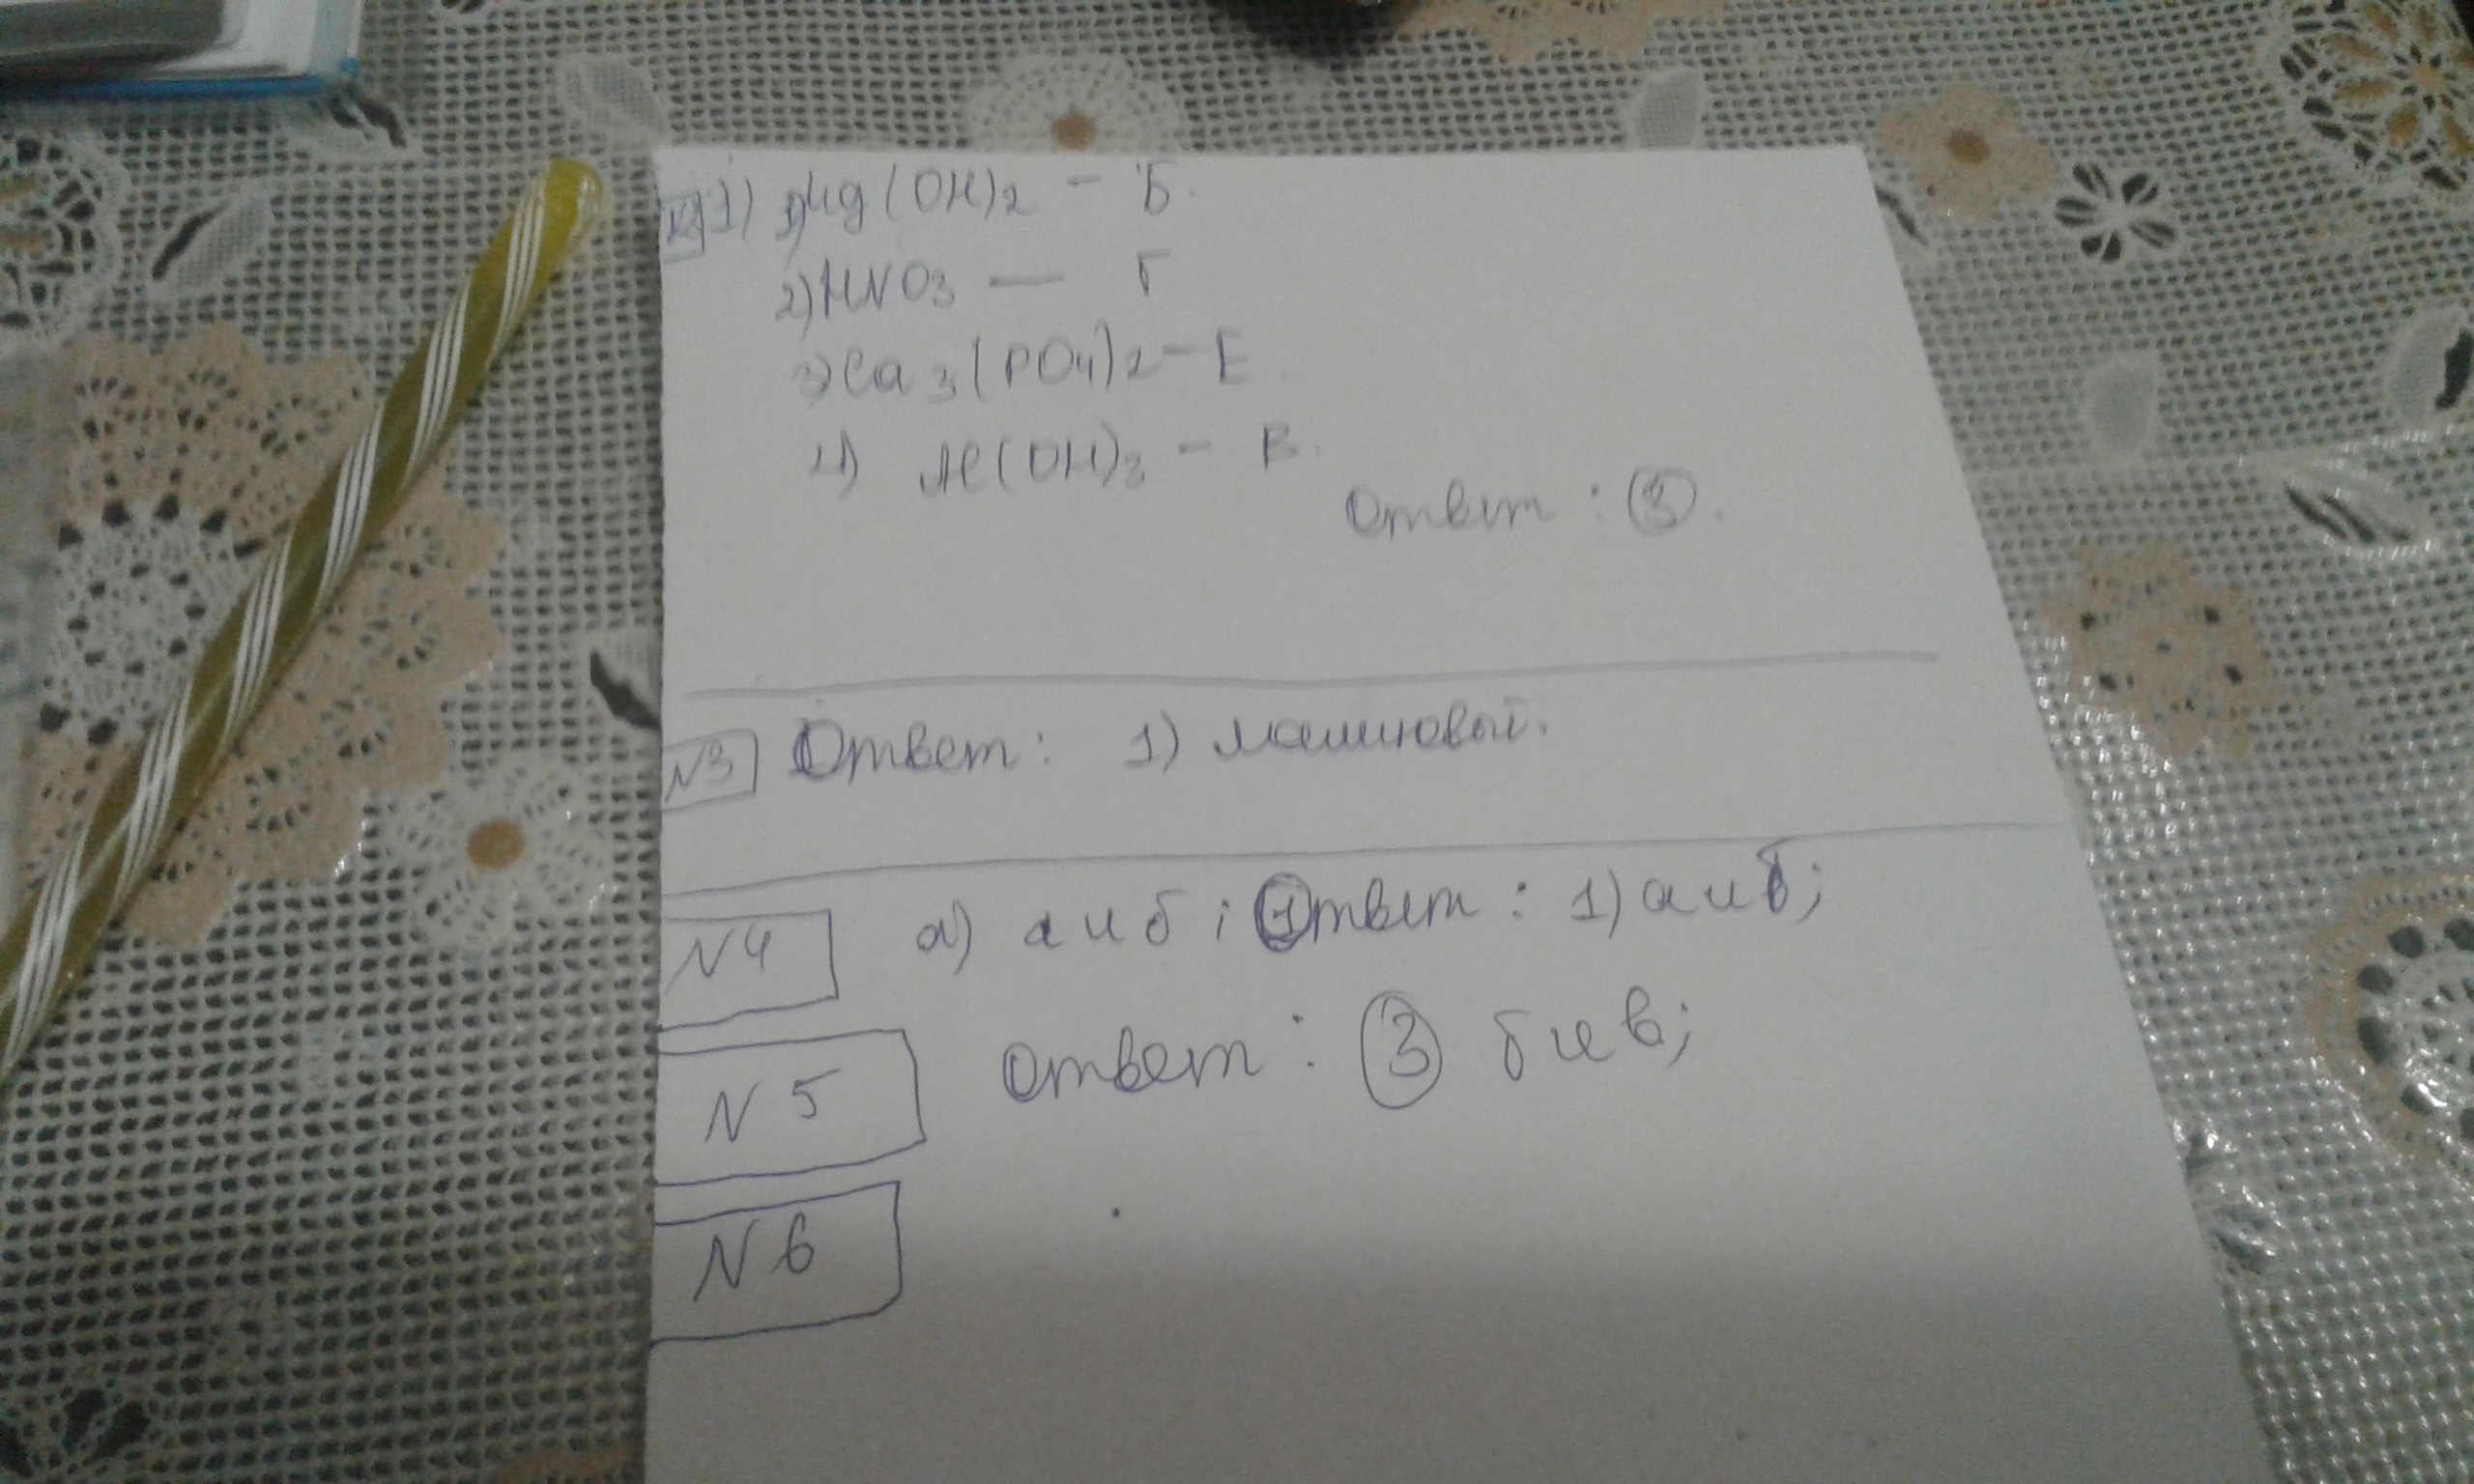 1) 1) Mg(OH)2 - Б.
2) HNO3 — Г
3) Ca3(PO4)2 - Е
4) Al(OH)3 - В.
Ответ: 3.
N3 Ответ: 1) малиновый.
N4 а) а и б; Ответ: 1) а и б;
N5 Ответ: 3 б и в;
N6